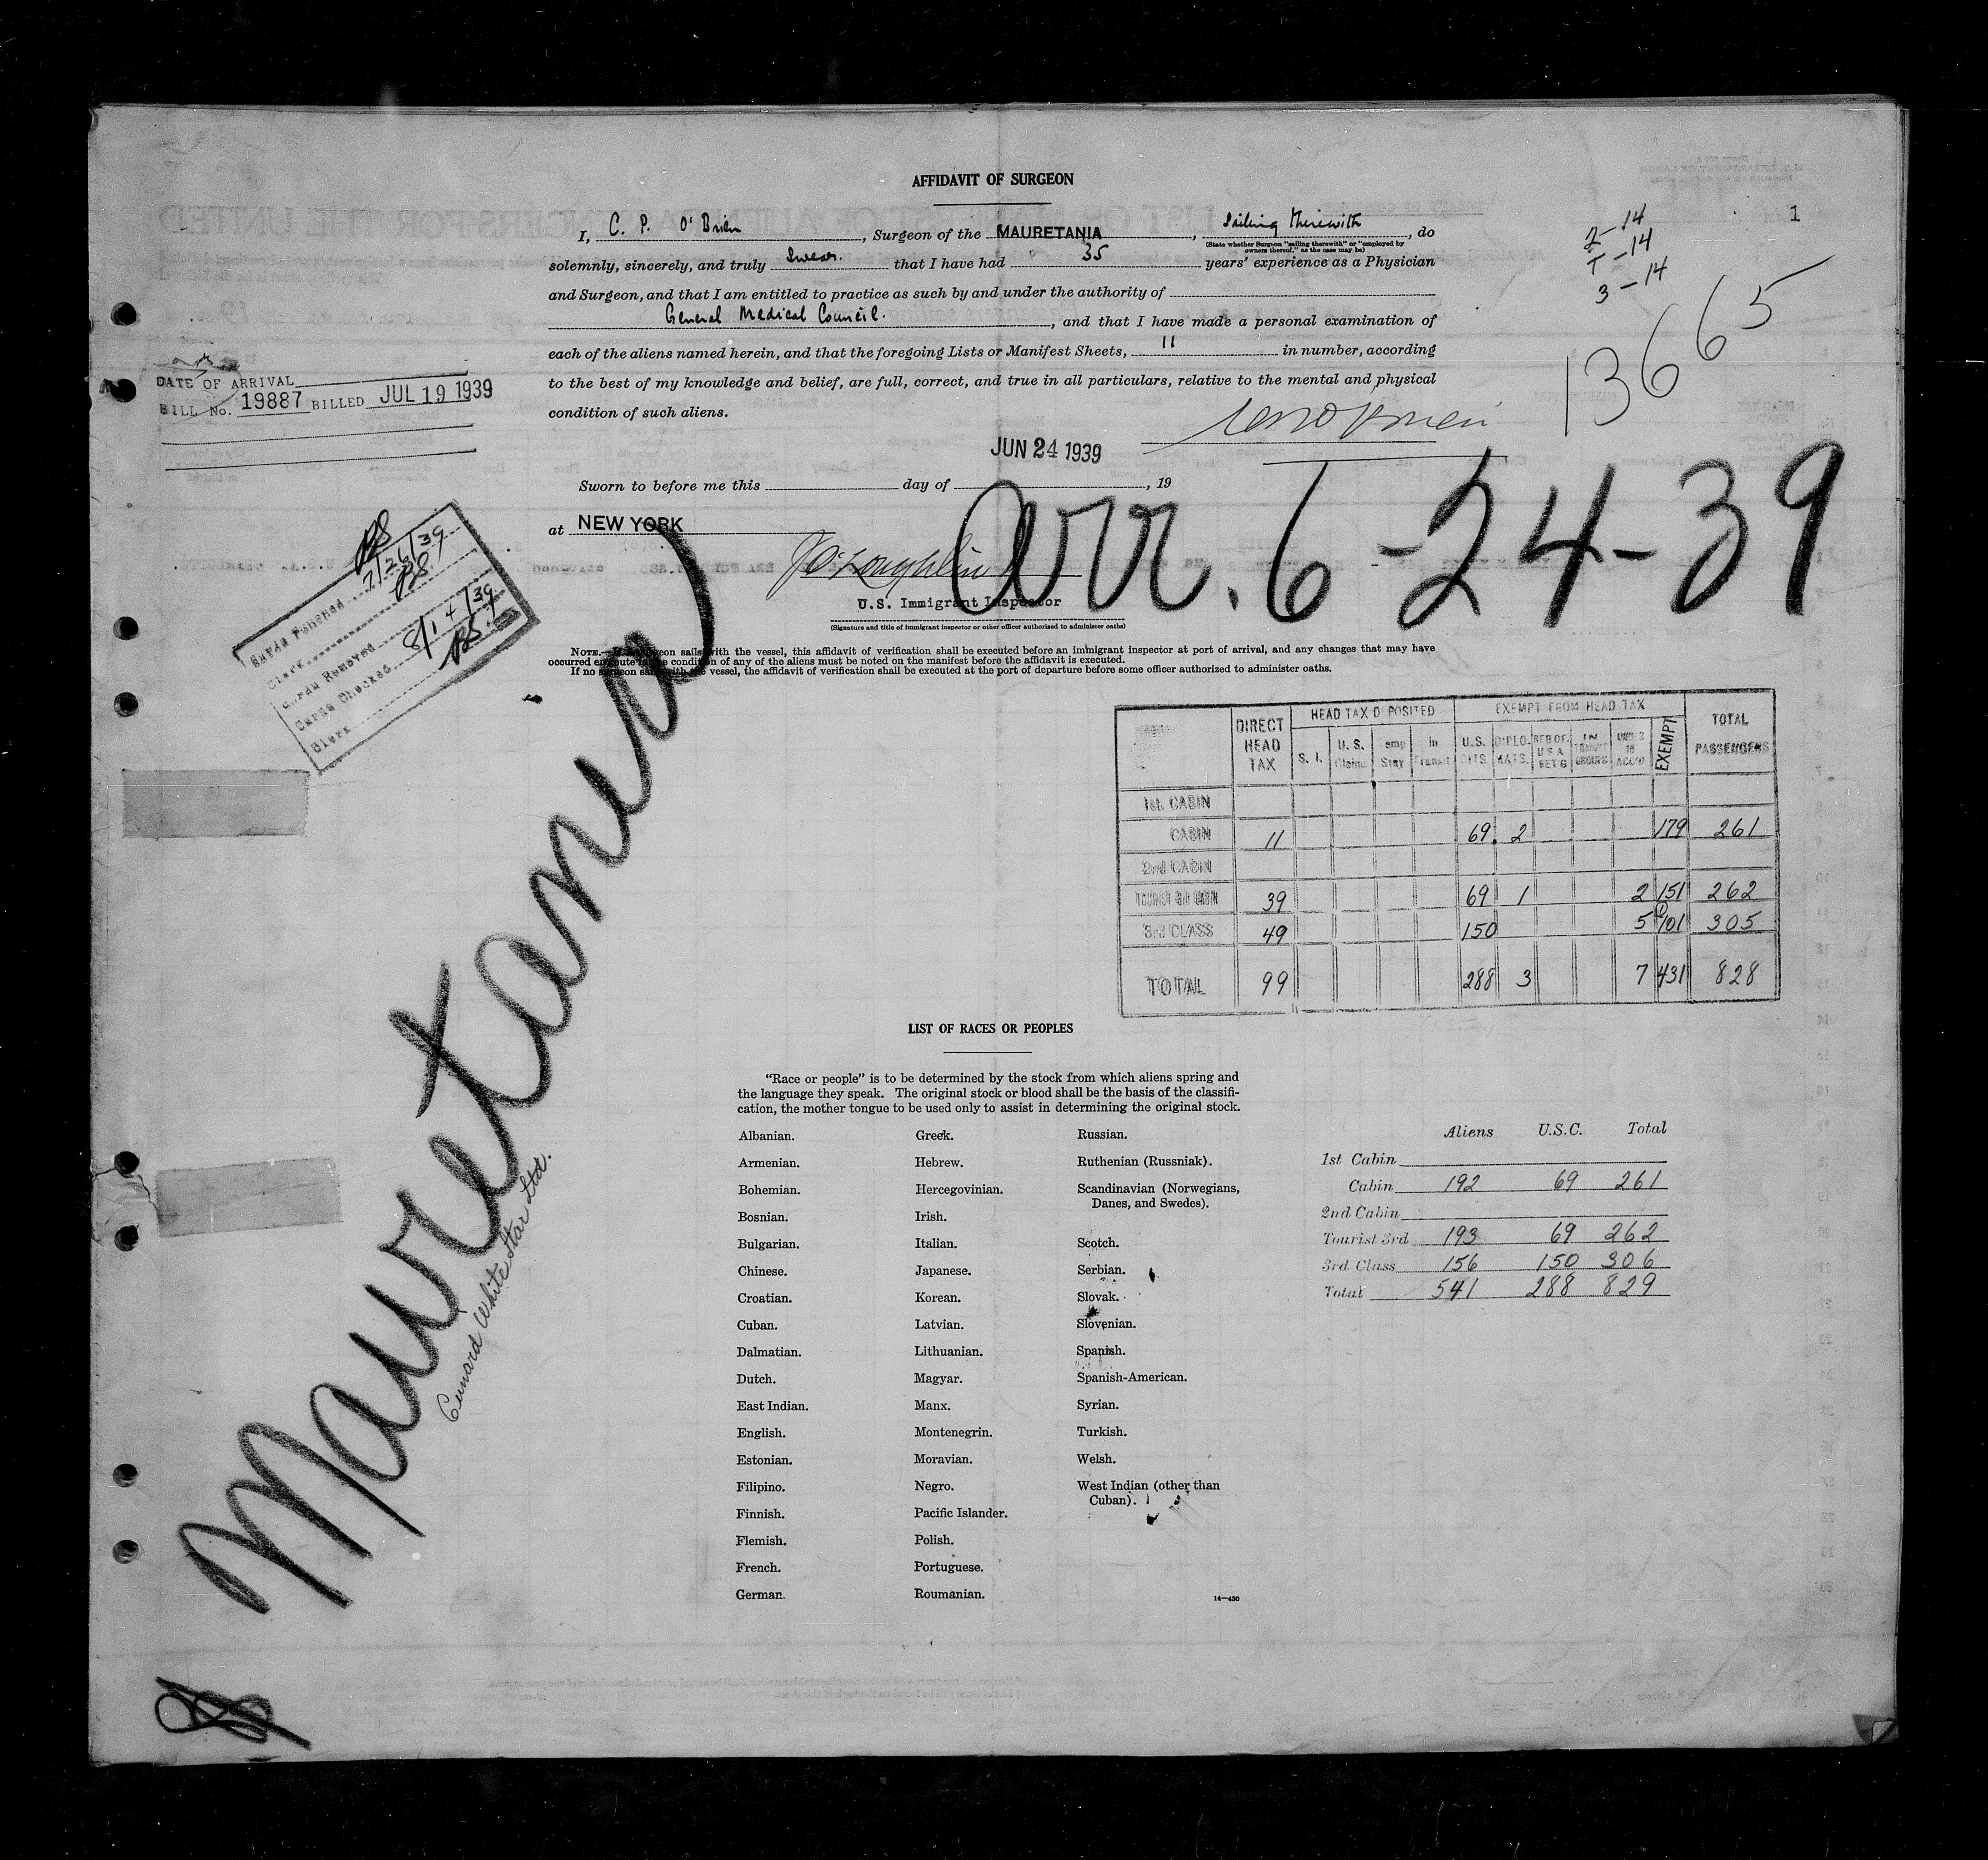 AFFIDAVIT OF SURGEON
1
I, C. P. O'Brien, Surgeon of the MAURETANIA, sailing therewith, do
(State whether Surgeon "sailing therewith" or "employed by owners thereof," as the case may be)
solemnly, sincerely, and truly swear. that I have had 35 years' experience as a Physician
and Surgeon, and that I am entitled to practice as such by and under the authority of
General Medical Council., and that I have made a personal examination of
each of the aliens named herein, and that the foregoing Lists or Manifest Sheets, 11 in number, according
to the best of my knowledge and belief, are full, correct, and true in all particulars, relative to the mental and physical
condition of such aliens.
2-14
T-14
3-14
13665
DATE OF ARRIVAL
BILL No. 19887 BILLED JUL 19 1939
JUN 24 1939
Sworn to before me this day of , 19
at NEW YORK
Arr. 6-24-39
J O'Loughlin
U.S. Immigrant Inspector
(Signature and title of immigrant inspector or other officer authorized to administer oaths)
NOTE.—If surgeon sails with the vessel, this affidavit of verification shall be executed before an immigrant inspector at port of arrival, and any changes that may have
occurred en route in the condition of any of the aliens must be noted on the manifest before the affidavit is executed.
If no surgeon sails with the vessel, the affidavit of verification shall be executed at the port of departure before some officer authorized to administer oaths.
Cards Punched 7/26/39
Clerk BS
Cards Removed
Cards Checked 8/14/39
Clerk BS
Mauretania
Cunard White Star Ltd.
DIRECT HEAD TAX HEAD TAX DEPOSITED EXEMPT FROM HEAD TAX TOTAL PASSENGERS
S. I. U. S. Claim Temp Stay In Transit U.S. CITS DIPLO. MATS. RES OF U S A RET'G IN TRANSIT GROUPS UNDER 16 ACC'D EXEMPT
1st. CABIN
CABIN 11 69 2 179 261
2nd CABIN
TOURIST 3rd CABIN 39 69 1 2 151 262
3rd CLASS 49 150 5 101 305
TOTAL 99 288 3 7 431 828
LIST OF RACES OR PEOPLES
"Race or people" is to be determined by the stock from which aliens spring and
the language they speak. The original stock or blood shall be the basis of the classifi-
cation, the mother tongue to be used only to assist in determining the original stock.
Albanian. Greek. Russian.
Armenian. Hebrew. Ruthenian (Russniak).
Bohemian. Hercegovinian. Scandinavian (Norwegians,
Danes, and Swedes).
Bosnian. Irish.
Bulgarian. Italian. Scotch.
Chinese. Japanese. Serbian.
Croatian. Korean. Slovak.
Cuban. Latvian. Slovenian.
Dalmatian. Lithuanian. Spanish.
Dutch. Magyar. Spanish-American.
East Indian. Manx. Syrian.
English. Montenegrin. Turkish.
Estonian. Moravian. Welsh.
Filipino. Negro. West Indian (other than
Cuban).
Finnish. Pacific Islander.
Flemish. Polish.
French. Portuguese.
German. Roumanian.
14—430
Aliens U.S.C. Total
1st Cabin
Cabin 192 69 261
2nd Cabin
Tourist 3rd 193 69 262
3rd Class 156 150 306
Total 541 288 829